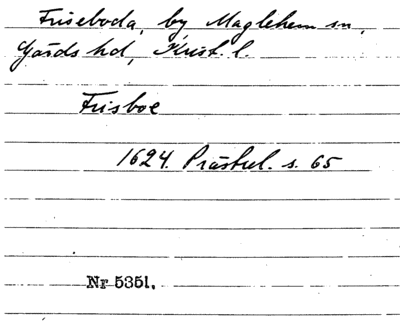 Friseboda, by Maglehem sn,
Gärds hd, Krist. l.
Frisboe
1624. Prästrel. s. 65
Nr 5351.